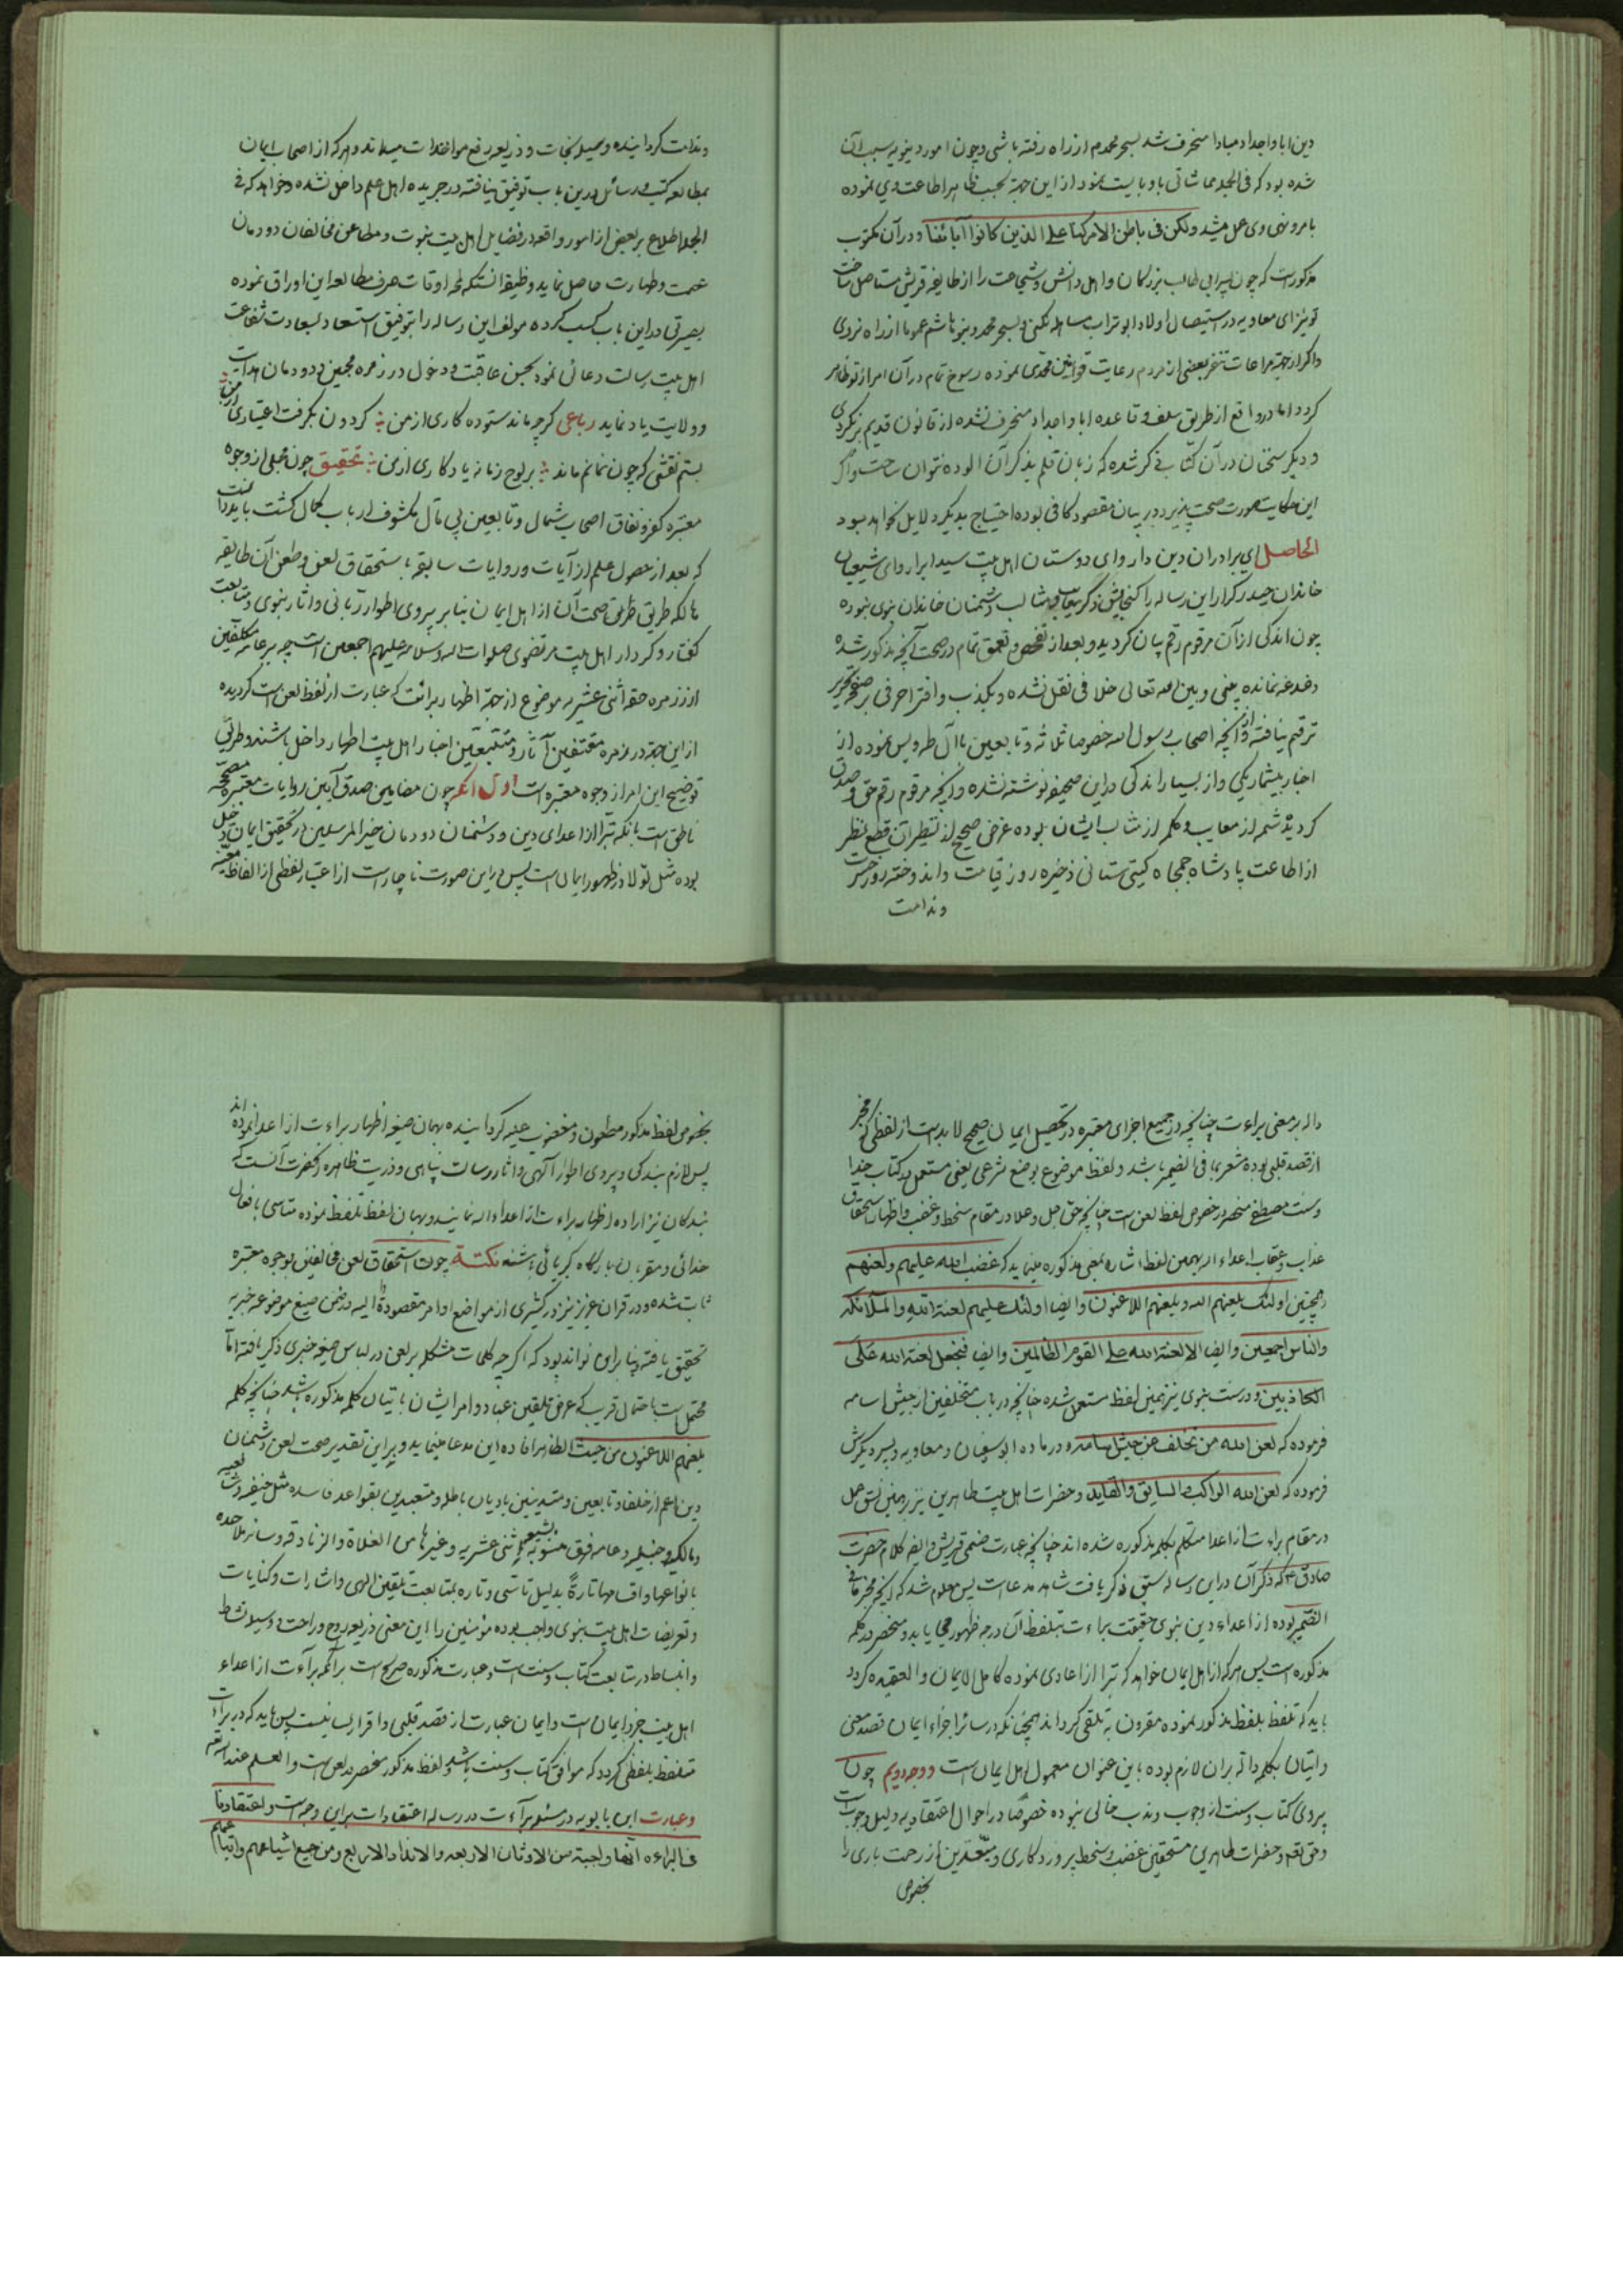 دین ابا و اجداد مبادا منحرف شد بسحر محمد هم از راه رفته باشی و چون امور دینویه سبب آن
شده بود که فی الجمله مماشاتی با او بایست نمود از این جهة بحسب ظاهر اطاعت وی نموده
بامر و نهی وی عمل میشد ولکن فی باطن الامر کنا علی الذین کانوا آبائنا و در آن مکتوب
مذکورست که چون پسر ابی طالب بزرکان و اهل دانش و شجاعت را از طایفه قریش مستاصل ساخت
تو نیز ای معاویه در استیصال اولاد ابوتراب مساهله نکنی و بسحر محمد و بنو هاشم عموما از راه نروی
و اکر از جهة مراعات تنفر بعضی از مردم رعایت قوانین محمدی نموده رسوخ تمام در آن امر از تو ظاهر
کردد اما در واقع از طریق سلف و قاعده ابا و اجداد منحرف نشده از قانون قدیم برنکردی
و دیکر سخنان در آن کتابی ذکر شده که زبان قلم بذکر آن الوده نتوان ساخت و اکر
این حکایت صورت صحت پذیرد در بیان مقصود کافی بوده احتیاج بدیکر دلایل نخواهد بود
الحاصل ای برادران دین دار و ای دوستان اهل بیت سید ابرار و ای شیعیان
خاندان حیدر کرار این رساله را کنجایش ذکر معایب و مثالب دشمنان خاندان نبوی نبوده
چون اندکی از آن مرقوم رقم بیان کردید و بعد از تفحص و تعمق تمام در صحت آنچه مذکور شد
دغدغه نمانده بینی و بین الله تعالی خلافی نقل نشده و بکذب و افترا حرفی بر صفحه تحریر
ترقیم نیافته و از آنچه اصحاب رسول الله خصوصا ثلاثه و تابعین با آل طه و یس نموده از
اخبار بیشمار یکی و از بسیار اندکی در این صحیفه نوشته نشده و آنچه مرقوم رقم حق و صدق
کردیده شمه از معایب و کلمه از مثالب ایشان بوده غرض صحیح از تسطیر آن قطع نظر
از اطاعت پادشاه جمجاه کیتی ستانی ذخیره روز قیامت و اندوخته روز حسرت
و ندامت
و ندامت کردانیده وسیله نجات و ذریعه رفع مواخذات میداند و هر که از اصحاب ایمان
بمطالعه کتب و رسائل در این باب توفیق نیافته در جریده اهل علم داخل نشده و خواهد که فی
الجمله اطلاع بر بعض از امور واقعه در فضایل اهل بیت نبوت و مطاعن مخالفان دودمان
عصمت و طهارت حاصل نماید وظیفه انستکه لمحه اوقات صرف مطالعه این اوراق نموده
بصیرتی در این باب کسب کرده مولف این رساله را بتوفیق استسعاد بسعادت شفاعت
اهل بیت رسالت دعائی نمود بحسن عاقبت و دخول در زمره محبین دودمان هدایت
و ولایت یاد نماید رباعی کرچه ماند ستوده کاری از من کردون نکرفت اعتباری از من
بستم نقشی که چون نمانم ماند بر لوح زمانه یادکاری از من تحقیق چون مجملی از وجوه
معتبره کفر و نفاق اصحاب شمال و تابعین بی تامل مکشوف ارباب کمال کشت باید دانست
که بعد از حصول علم از آیات و روایات سابقه باستحقاق لعن و طعن آن طایفه
هالکه طریق صحت آن از اهل ایمان بنابر پیروی اطوار ربانی و اثار نبوی و متابعت
کفتار و کردار اهل بیت مرتضوی صلوات الله و سلامه علیهم اجمعین است چه بر عامه مکلفین
از زمره حقه اثنی عشریه موضوع از جهة اظهار برائت که عبارت از لفظ لعن است کردیده
از این جهة در زمره مقتفین آثار و متتبعین اخبار اهل بیت اطهار داخل باشند و طریق
توضیح این امر از وجوه معتبره است اول آنکه چون مضامین صدق آیین روایات معتبره صحیحه
ناطق است بانکه تبرا از اعدای دین و دشمنان دودمان خیر المرسلین در تحقیق ایمان دخیل
بوده مثل تولا در ظهور ایمان است پس در این صورت ناچار است از اعتبار لفظی از الفاظ معینه
داله بر معنی براءت چنانچه در جمیع اجزای معتبره در تحصیل ایمان صحیح لابد است از لفظی که مخبر
از قصد قلبی بوده مشعر بما فی الضمیر باشد و لفظ موضوع بوضع شرعی یعنی مستعمل در کتاب خدا
و سنت مصطفی منحصر در خصوص لفظ لعن است چنانچه حق جل و علا در مقام سخط و غضب و اظهار استحقاق
عذاب و عقاب اعداء الله بهمین لفظ اشاره بمعنی مذکوره مینماید که غضب الله علیهم و لعنهم
و همچنین اولئک یلعنهم الله و یلعنهم اللاعنون و ایضا اولئک علیهم لعنة الله والملائکه
والناس اجمعین و ایضا الا لعنة الله علی القوم الظالمین و ایضا فنجعل لعنة الله علی
الکاذبین و در سنت نبوی نیز همین لفظ مستعمل شده چنانچه در باب متخلفین از جیش اسامه
فرموده که لعن الله من تخلف عن جیش اسامه و در ماده ابوسفیان و معاویه و پسر دیکرش
فرموده که لعن الله الراکب و السایق و القاید و حضرات اهل بیت طاهرین نیز بر همین نسق عمل
در مقام براءت از اعدا متکلم بکلمه مذکوره شده اند چنانچه عبارت صنمی قریش و ایضا کلام حضرت
صادق ع که ذکر آن در این رساله سبق ذکر یافت شاهد مدعاست پس معلوم شد که آنچه مخبر ما فی
الضمیر بوده از اعداء دین نبوی حقیقت براءت بتلفظ آن درجه ظهور می یابد و منحصر در کلمه
مذکوره است پس هر که از اهل ایمان خواهد که تبرا از اعادی نموده کامل الایمان و العقیده کردد
باید که تلفظ بلفظ مذکور نموده مقرون به تلقی کرداند همچنانکه در سائر اجزاء ایمان قصد معنی
و اتیان بکلمه داله بران لازم بوده باین عنوان معمول اهل ایمان است و وجه دویم چون
پیروی کتاب و سنت از وجوب و ندب خالی نبوده خصوصا در احوال اعتقادیه و لیل وجوب است
و حق تعالی و حضرات طاهرین مستحقین غضب و سخط پروردکاری و مبعدین از رحمت باری را
بخصوص
بخصوص لفظ مذکور مطعون و مغضوب علیه کردانیده بهمان صیغه اظهار براءت از اعدا نموده اند
پس لازم بندکی و پیروی اطوار آلهی و اثار رسالت پناهی و ذریت طاهره آنحضرت آنست که
بندکان نیز اراده اظهار براءت از اعداء الله نمایند و بهمان لفظ تلفظ نموده متاسی بافعال
خدائی و مقربان بارکاه کبریائی باشند نکتة چون استحقاق لعن مخالفین بوجوه معتبره
ثابت شده و در قران عزیز نیز در کثیری از مواضع اوامر مقصودة الیه در ضمن صیغ موضوعه خبریه
تحقیق یافته بنابراین تواند بود که اکرچه کلمات مشکله بر لعن در لباس صیغه خبری ذکر یافته اما
محتمل است باحتمال قریب که غرض تلقین عباد و امر ایشان باتیان کلمه مذکوره باشد چنانچه کلمه
یلعنهم اللاعنون من حیث الظاهر افاده این مدعا مینماید و بر این تقدیر صحت لعن دشمنان
دین اعم از خلفا و تابعین و متدینین بادیان باطله و متعبدین بقواعد فاسده مثل حنیفه و شافعیه
و مالکیه و حنبلیه و عامه فرق منسوبه بشیعه اثنی عشریه و غیرها من الغلاة و الزنادقه و سائر ملاحده
بانواعها و اقسامها تارةً بدلیل تاسی و تاره بمتابعت تلقین الهی و اشارات و کنایات
و تعریضات اهل بیت نبوی واجب بوده مؤمنین را این معنی ذریعه روح و راحت و وسیله نشاط
و انبساط در متابعت کتاب و سنت است و عبارت مذکوره صریح است برآنکه برآءت از اعداء
اهل بیت جزو ایمان است و ایمان عبارت از قصد قلبی و اقرار لسانیست پس باید که در برآءت
متلفظ بلفظی کردد که موافق کتاب و سنت باشد و لفظ مذکور منحصر در لعن است و العلم عند الله
و عبارت ابن بابویه در مسئله برآءت در رساله اعتقادات براین وجه است و اعتقادنا
فی البراءه انها واجبة من الاوثان الاربعه و الانداد الاربع و من جمیع اشیاعهم و اتباعهم